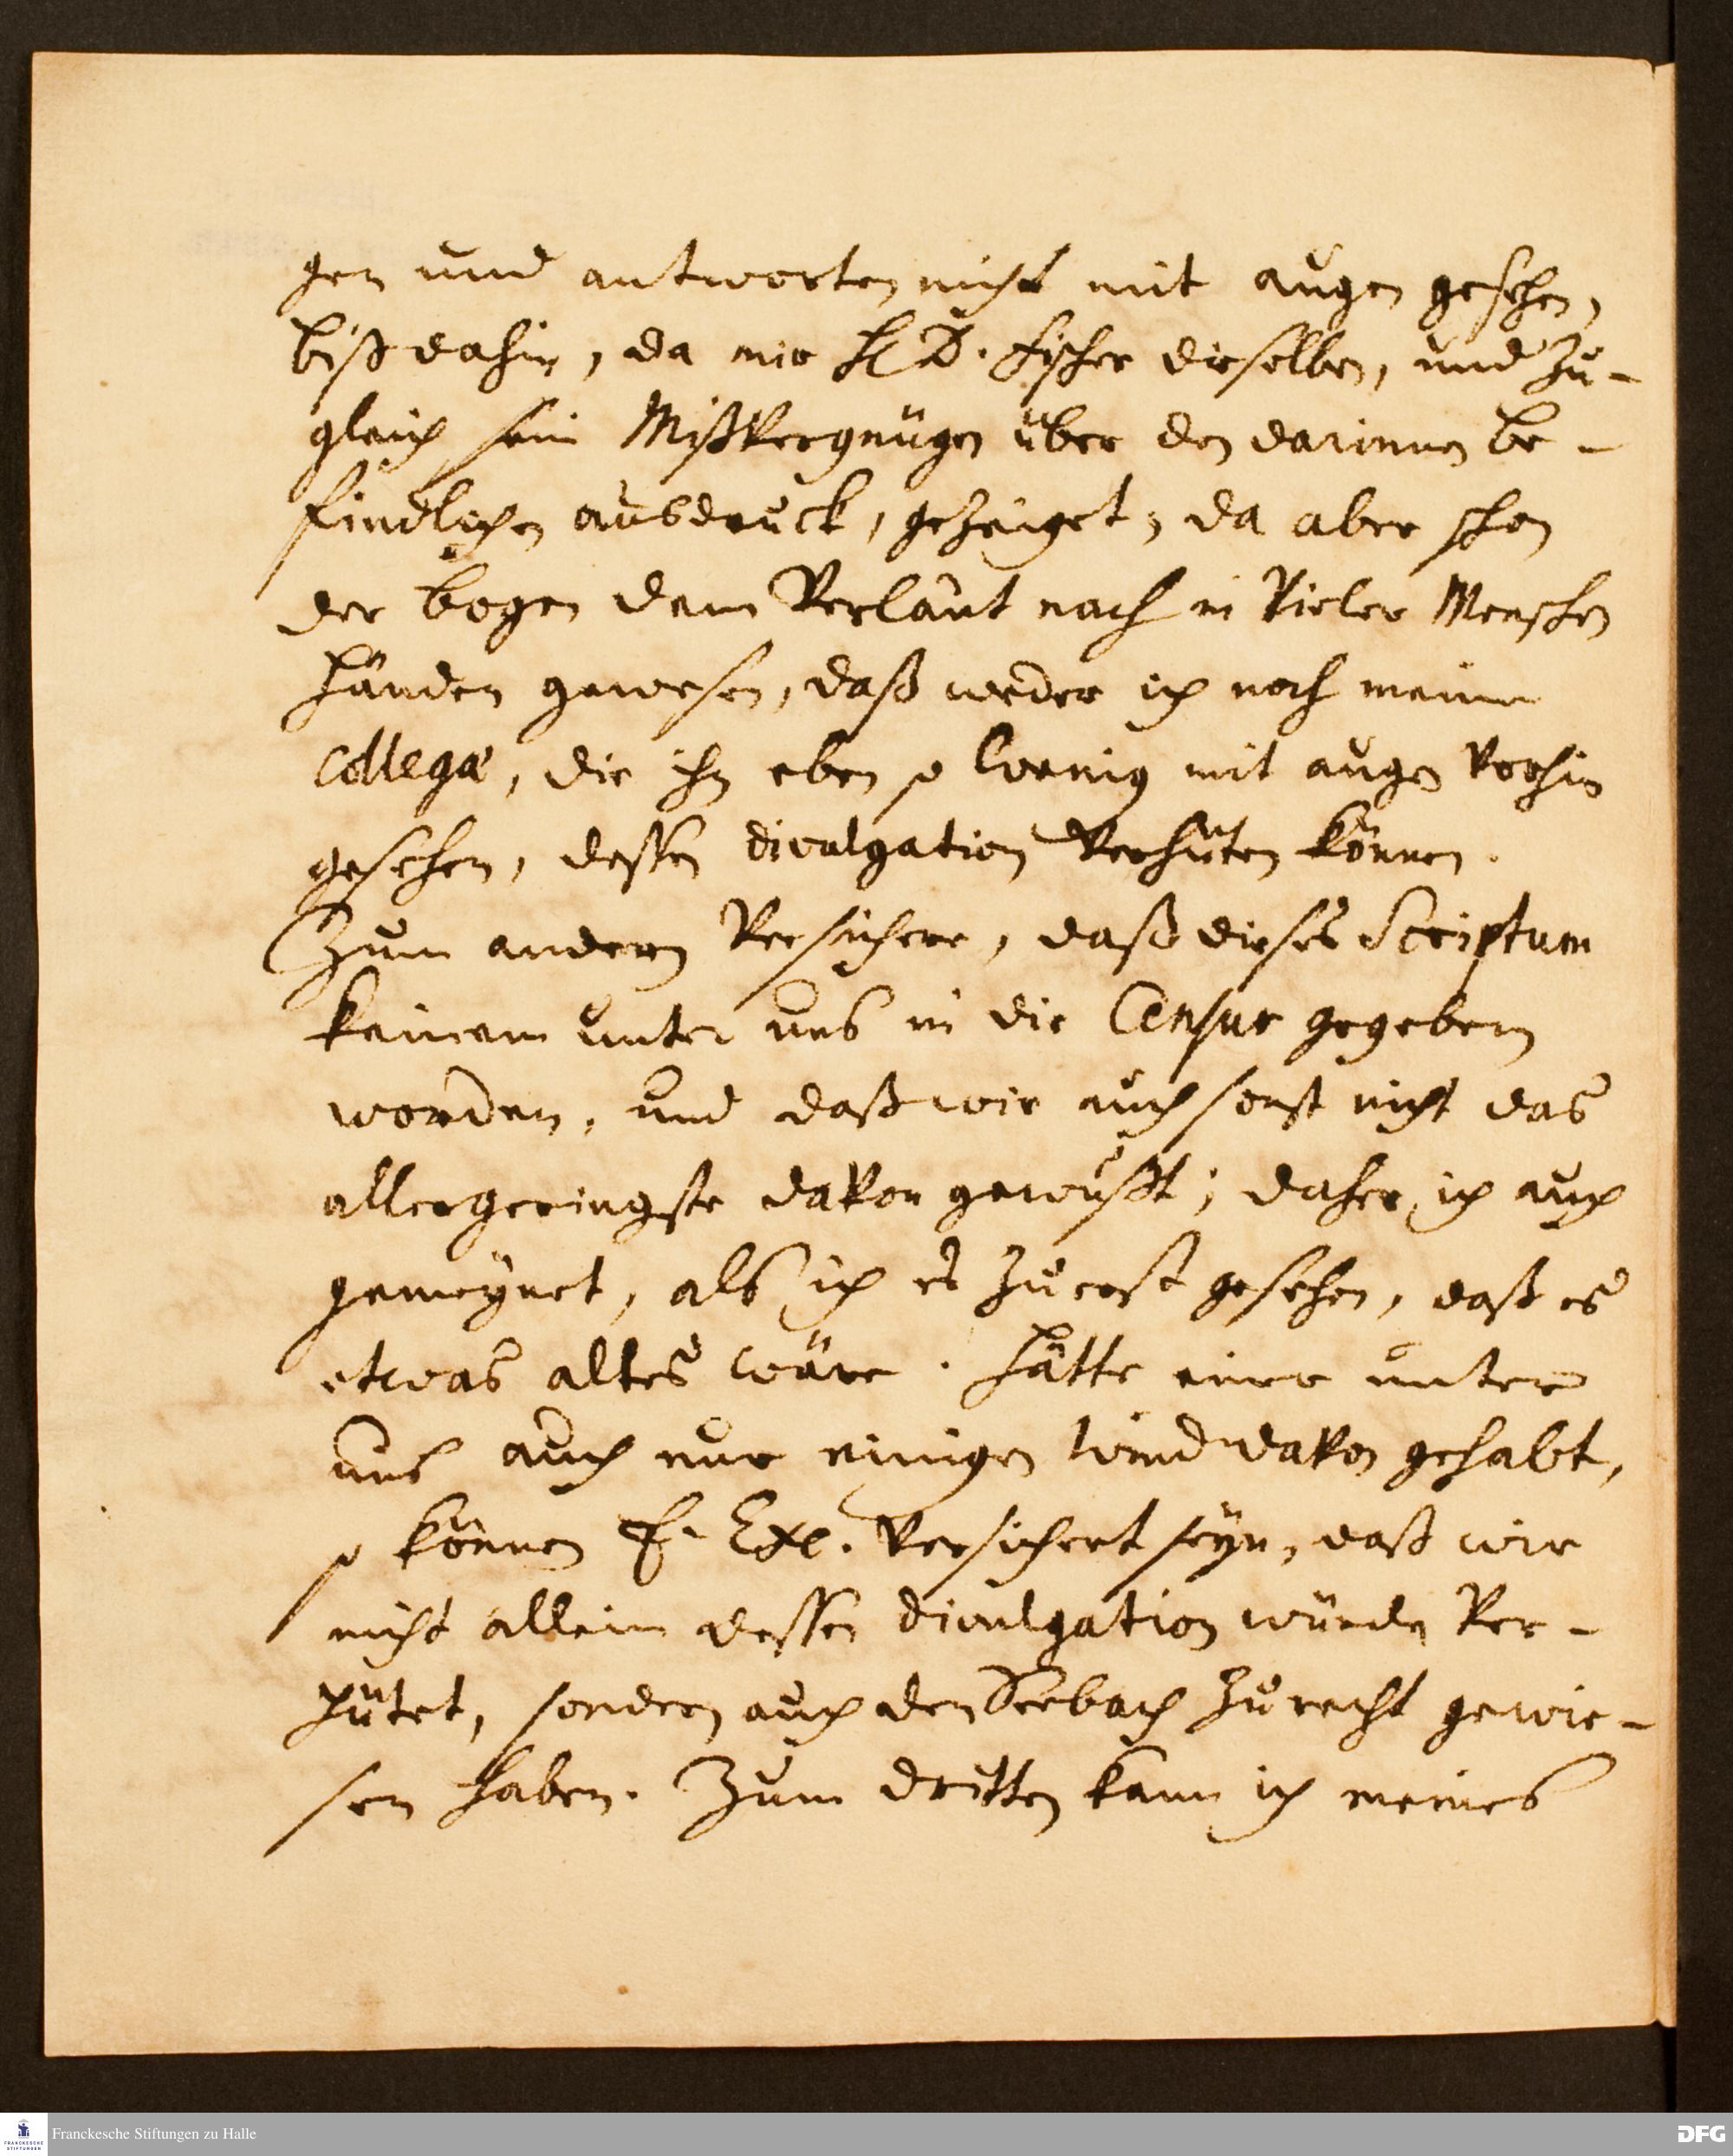 gen und antworten nicht mit augen gesehen,
biß dahin, da mir H. D. Fischer dieselben, und zu-
gleich sein Mißvergnügen über den darinnen be-
findlichen ausdruck, gezeiget; da aber schon
der bogen dem Verlaut nach in Vieler Menschen
händen gewesen, daß weder ich noch meine
Collegæ, die ihn eben so wenig mit augen vorhin
gesehen, deßen divulgation verhüten können.
Zum andern Versichere, daß dieses Scriptum
keinem unter uns in die Censur gegeben
worden, und daß wir auch sonst nicht das
allergeringste davon gewußt; daher ich auch
gemeynet, als ich es zuerst gesehen, daß es
etwas altes wäre. hätte einer unter
uns auch nur einigen wind davon gehabt,
so können E. Exc. Versichert seyn, daß wir
nicht allein deßen divulgation würden Ver-
hütet, sondern auch den Seebach zurecht gewie-
sen haben. Zum dritten kann ich meines
FRANCKESCHE STIFTUNGEN
Franckesche Stiftungen zu Halle
DFG